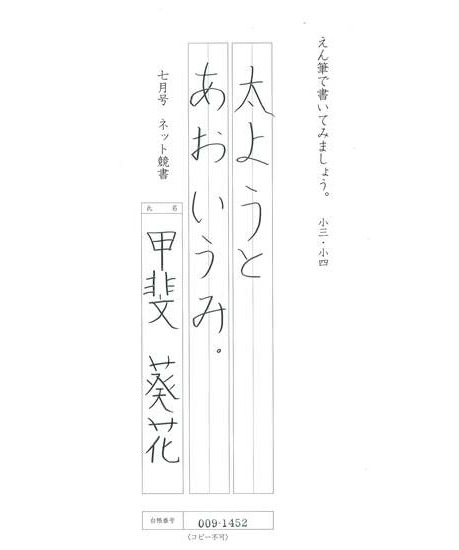 えん筆で書いてみましょう。 小三・小四
太ようと
あおいうみ。
七月号 ネット競書
氏名
甲斐 葵花
台帳番号 009-1452
〈コピー不可〉